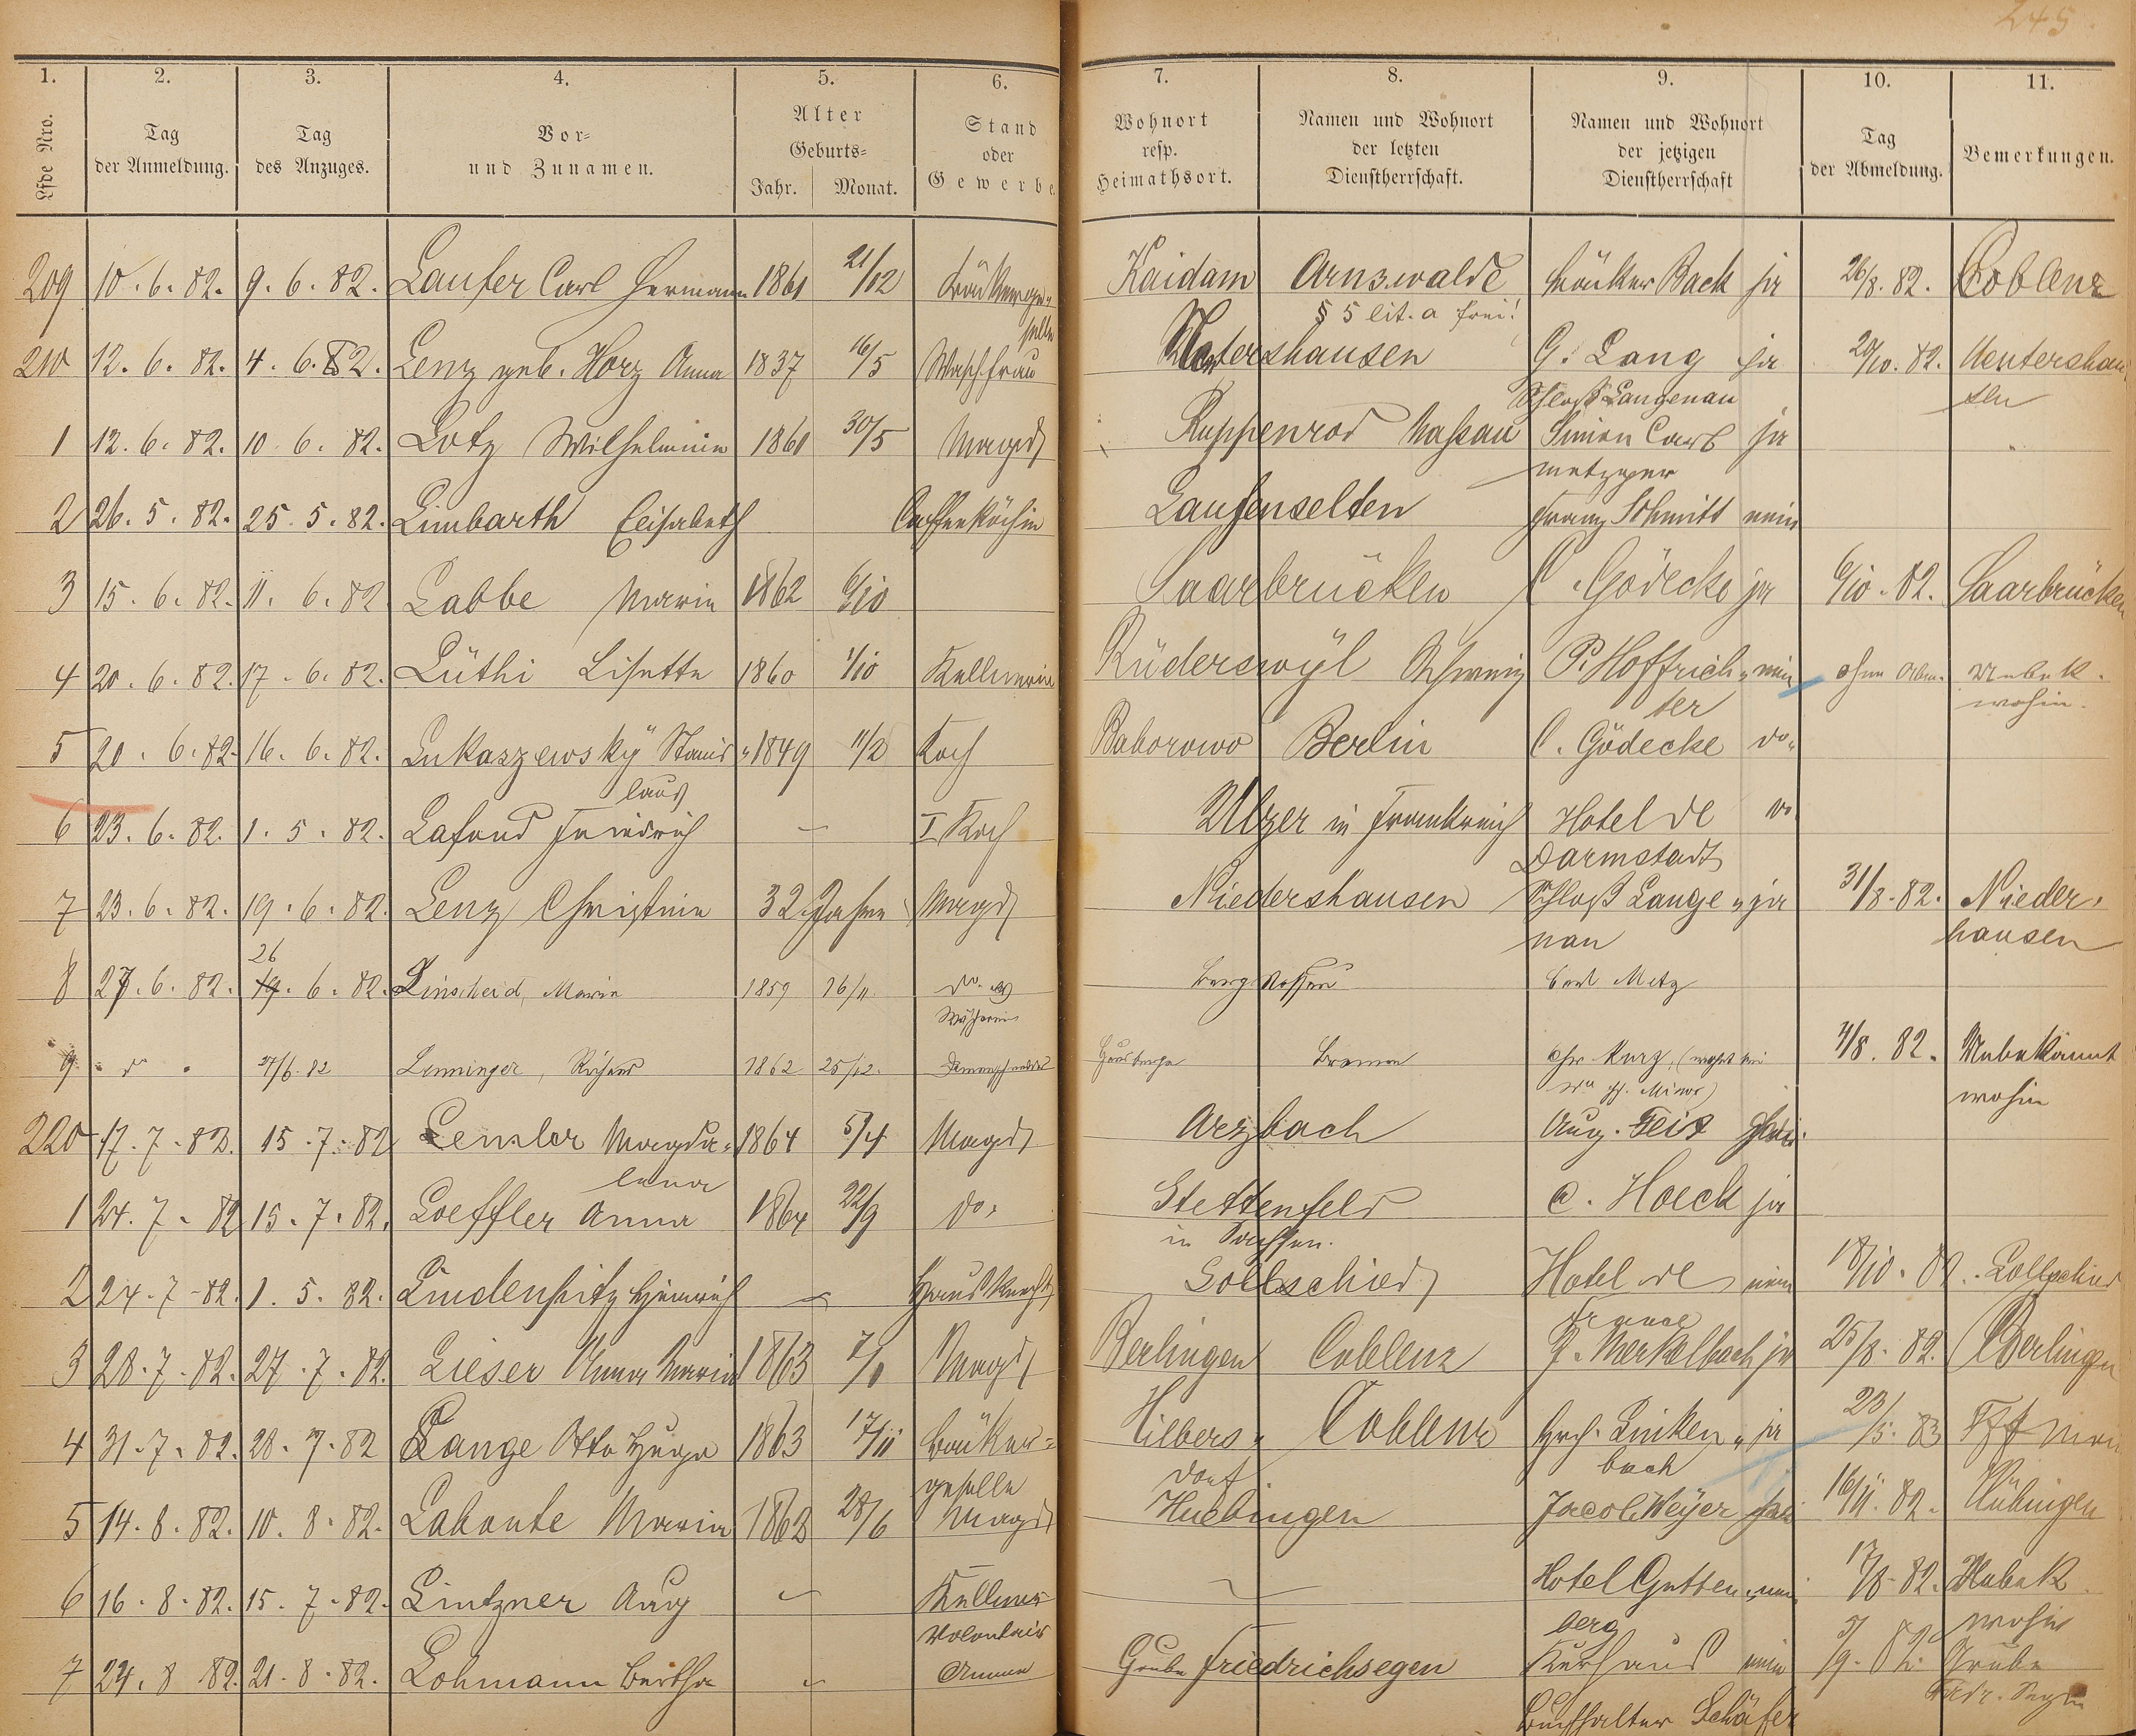 245
1. 2. 3. 4. 5. 6. 7. 8. 9. 10. 11.
Lfde Nro. Tag der Anmeldung. Tag des Anzuges. Vor- und Zunamen. Alter Geburts- Jahr. Monat. Stand oder Gewerbe. Wohnort resp. Heimathsort. Namen und Wohnort der letzten Dienstherrschaft. Namen und Wohnort der jetzigen Dienstherrschaft Tag der Abmeldung. Bemerkungen.
209 10. 6. 82. 9. 6. 82. Laufer Carl Hermann 1861 21/12 Bäckerge- Kaidam Arnswalde Bäcker Back ja 26/8. 82. Coblenz
selle § 5 lit. a frei!
210 12. 6. 82. 4. 6. 82. Lenz geb. Horz Anna 1837 16/5 Waschfrau G. Lang ja 20/10. 82. Nentershau
Schloß Langenau sen
1 12. 6. 82. 10. 6. 82. Lotz Wilhelmine 1861 30/5 Magd Ruppenrod Nassau Simon Carb ja
Metzger
2 26. 5. 82. 25. 5. 82. Limbarth Elisabeth Caffeeköchin Laufenselten Franz Schmitt nein
3 15. 6. 82. 11. 6. 82 Labbe Maria 1862 6/10 Saarbrücken C. Gödecke ja 6/10. 82. Saarbrücken
4 20. 6. 82. 17. 6. 82. Lüthi Lisette 1860 1/10 Kellnerin Rüderswyl Schweiz P. Hoffrich- nein ohne Abm. Unbek.
ter wohin.
5 20. 6. 82. 16. 6. 82. Lukaszewsky Stanis- 1849 11/2 Koch Baborowo Berlin C. Gödecke do.
laus
6 23. 6. 82. 1. 5. 82. Lafond Friedrich — I Koch Ulzer in Frankreich Hotel de do.
Darmstadt
7 23. 6. 82. 19. 6. 82. Lenz Christine 32 Jahre Magd Niedershausen Schloß Lange- ja 31/8. 82. Nieder-
nau hausen
26
8 27. 6. 82. 19. 6. 82. Linscheid, Marie 1859 16/11 do. Bergnassau Carl Metz
Wäscherin
9 " do " 27/6. 82 Lenninger, Richard 1862 25/12. Hausberge Bremen Chr. Kurz, 4/8. 82. Unbekannt
wohin
220 17. 7. 82. 15. 7. 82 Lensler Magda- 1864 5/4 Magd Arzbach Aug. Geis
lena
1 24. 7. 82 15. 7. 82. Loeffler Anna 1864 22/9 do. Stettenfels C. Hoeck ja
in Sachsen.
2 24. 7. 82. 1. 5. 82. Lindenfitz Heinrich — Hausknecht Sollschied Hotel de nein 18/10. 82. Sollschied
france
3 28. 7. 82. 27. 7. 82. Lieser Anna Maria 1863 7/1 Magd Berlingen Coblenz J. Merkelbach ja 25/8. 82. Berlingen
4 31. 7. 82. 28. 7. 82 Lange Otto Hugo 1863 17/11 Bäcker- Hilbers- Coblenz Hch. Linken- ja 23/5. 83 Fft Main
geselle dorf bach
5 14. 8. 82. 10. 8. 82. Labonte Maria 1862 28/6 Magd Huebingen Jacob Weyer ja 16/11. 82. Hübingen
6 16. 8. 82. 15. 7. 82. Lintzner Aug — Kellner — Hotel Gutten- nein 17/8. 82. Unbek.
Volontair berg wohin
7 24. 8. 82. 21. 8. 82. Lohmann Bertha — Amme Grube Friedrichsegen Kurhaus nein 5/9. 82. Grube
Buchhalter Schäfer Friedr. Segen